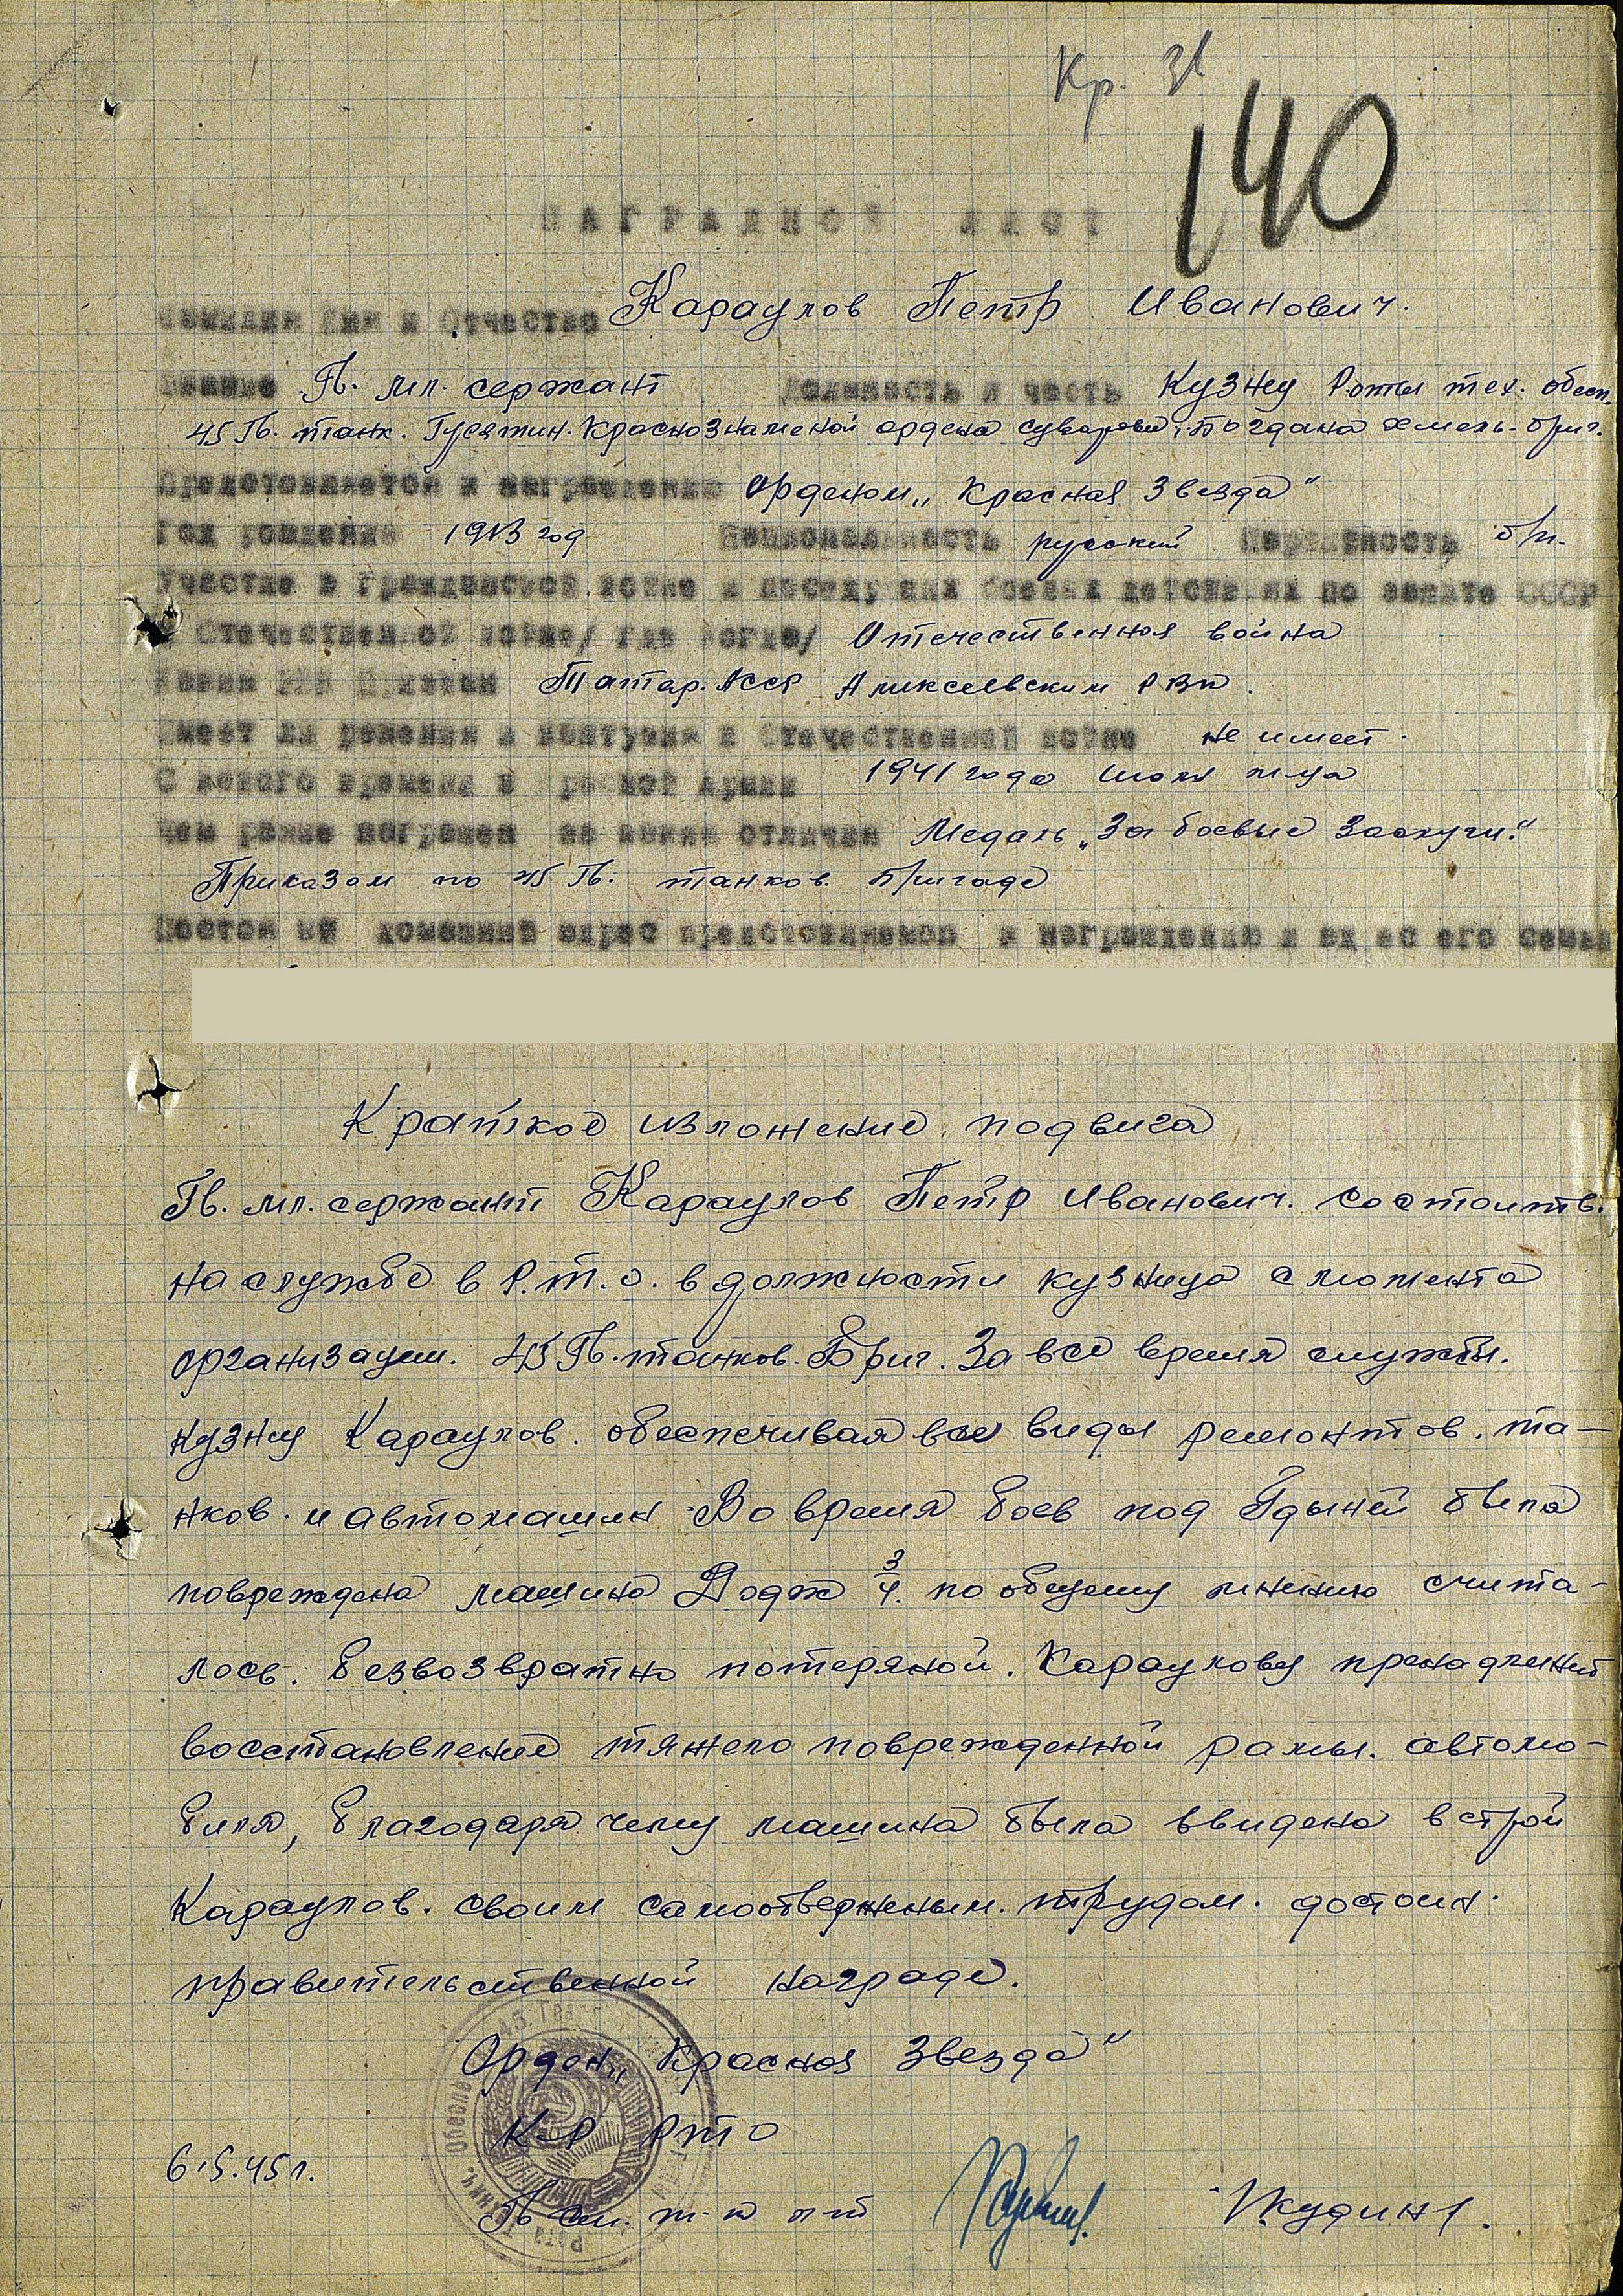 Кр. Зв
140
НАГРАДНОЙ ЛИСТ
Фамилия Имя и Отчество Караулов Петр Иванович.
Звание Гв. мл. сержант Должность и часть Кузнец Роты тех. обесп.
45 Гв. танк. Гусятин. Краснознаменой ордена Суворова, Богдана Хмель. бриг.
Представляется к награждению Орденом „Красная Звезда"
Год рождения 1913 год Национальность русский Партийность б/п.
Участие в гражданской войне и последующих боевых действиях по защите СССР
и Отечественной войне/ где когда/ Отечественная война
Каким РВК призван Татар. АССР Алексеевским РВК.
Имеет ли ранения и контузии в Отечественной войне не имеет.
С какого времени в Красной Армии 1941 года июля м-ца
Чем ранее награжден за какие отличия Медаль „За боевые Заслуги."
Приказом по 45 Гв. танков. бригаде
Постоянный домашний адрес представляемого к награждению и адрес его семьи
Краткое изложение подвига
Гв. мл. сержант Караулов Петр Иванович. состоит в.
на службе в Р.т.о. в должности кузнеца с момента
организации. 45 Гв. танков. Бриг. За все время службы.
кузнец Караулов. обеспечивая все виды ремонтов. та-
нков. и автомашин. Во время боев под Гдыней была
повреждена машина Додж 3/4. по общему мнению счита-
лось. безвозвратно потеряной. Караулову
восстановление тяжело поврежденной рамы. автомо-
биля, благодаря чему машина была введена в строй
Караулов. своим самоотверженым. трудом. достоин.
правительственной награде.
Орден „Красная Звезда"
К-Р РТО
6.5.45 г.
Гв ст. т-к л-т